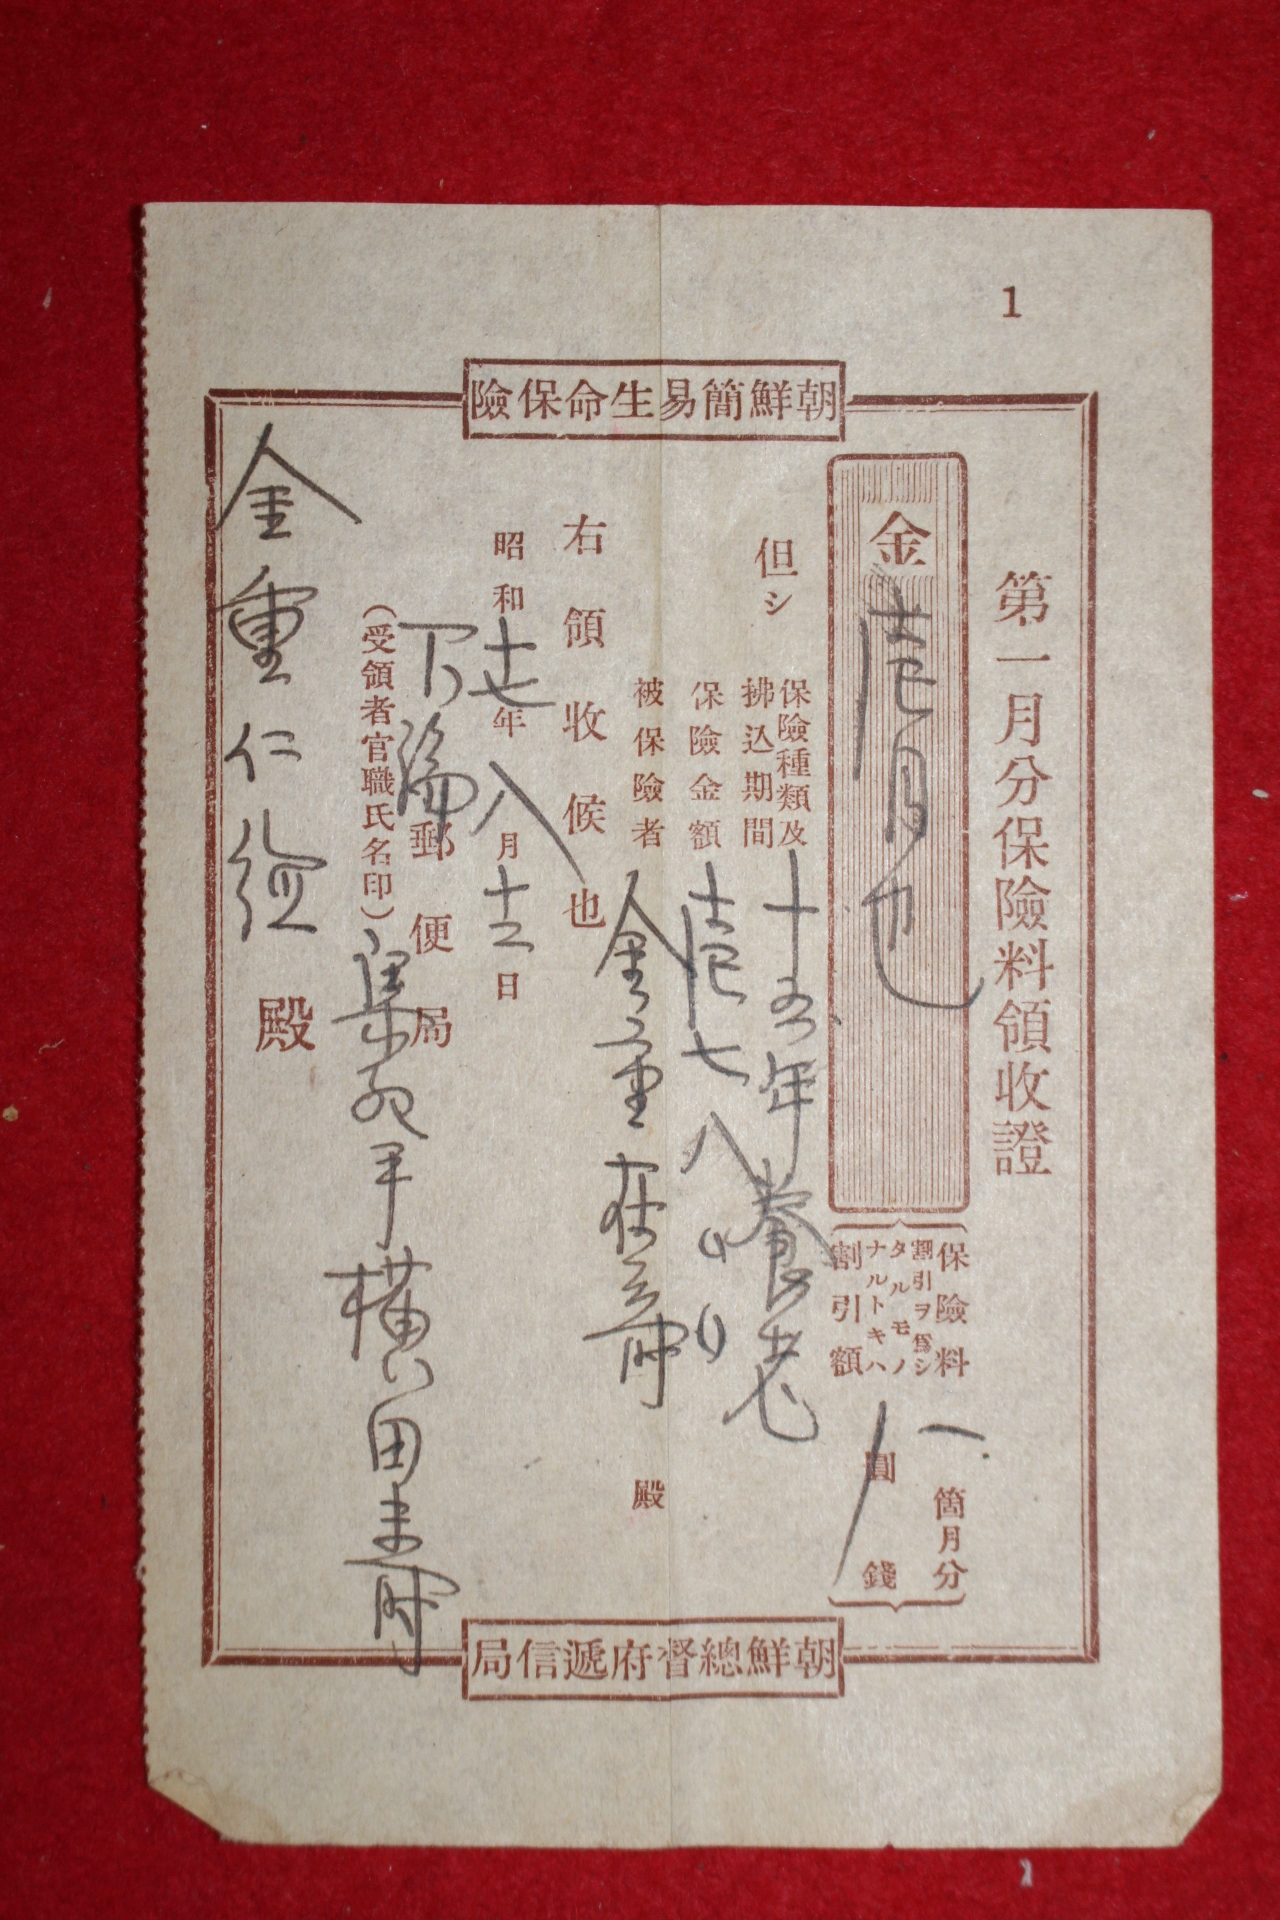 1
朝鮮簡易生命保險
第一月分保險料領收證
金壱円也
保險料
割引ヲ爲シ
タルモノ
ナルトキハ
割引額
一箇月分
圓 錢
但シ
保險種類及
拂込期間
十五年養老
保險金額
壱七八
被保險者
金重在 殿
右領收候也
昭和十七年八月十三日
下 郵便局
(受領者官職氏名印)
集 横田
金重仁 殿
朝鮮總督府遞信局